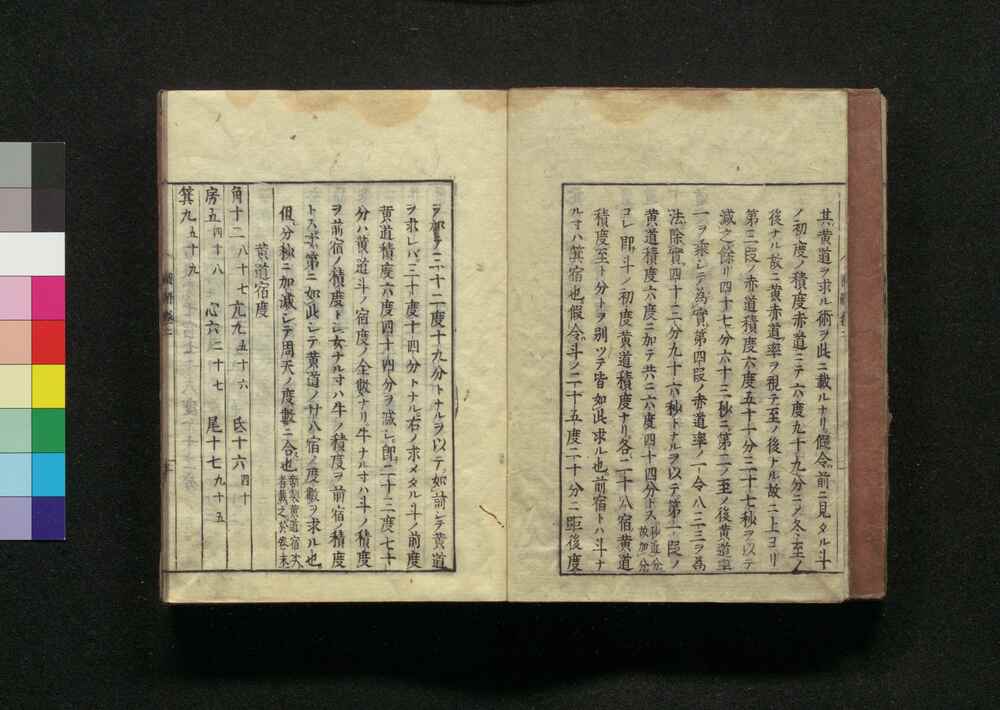 其黄道ヲ求ル術ヲ此ニ載ルナリ假令前ニ見タル斗
ノ初度ノ積度赤道ニテ六度九十九分ニメ冬至ノ
後ナル故ニ黄赤道率ヲ視テ至ノ後ナル故ニ上ヨリ
第三段ノ赤道積度六度五十一分二十七秒ヲ以テ
減之餘リ四十七分六十三秒ニ第二ノ至ノ後黄道率
一ヲ乘シテ為實第四段ノ赤道率ノ一令八二三ヲ為
法除實四十三分九十六秒トナルヲ以テ第一段ノ
黄道積度六度ニ加テ共ニ六度四十四分トス秒近分故加分
コレ即斗ノ初度黄道積度ナリ各二十八宿黄道
積度至ト分トヲ別ツテ皆如此求ル也前宿トハ斗ナ
ルヿハ箕宿也假令斗ノ二十五度二十分ニ距後度
ヲ加ヲ三十二度十九分トナルヲ以テ如前シテ黄道
ヲ求レバ三十度十四分トナル右ノ求メタル斗ノ前度
黄道積度六度四十四分ヲ減シ即二十三度七十
分ハ黄道斗ノ宿度ノ全數ナリ牛ナルヿハ斗ノ積度
ヲ前宿ノ積度トシ女ナルヿハ牛ノ積度ヲ前宿ノ積度
トス次第ニ如此シテ黄道ノ廿八宿ノ度數ヲ求ル也
但分秒ニ加減シテ周天ノ度數ニ合也 黄道宿次者載之於卷末
黄道宿度
角十二八十七 亢九五十六 氐十六四十
房五四十八 心六二十七 尾十七九十五
箕九五十九